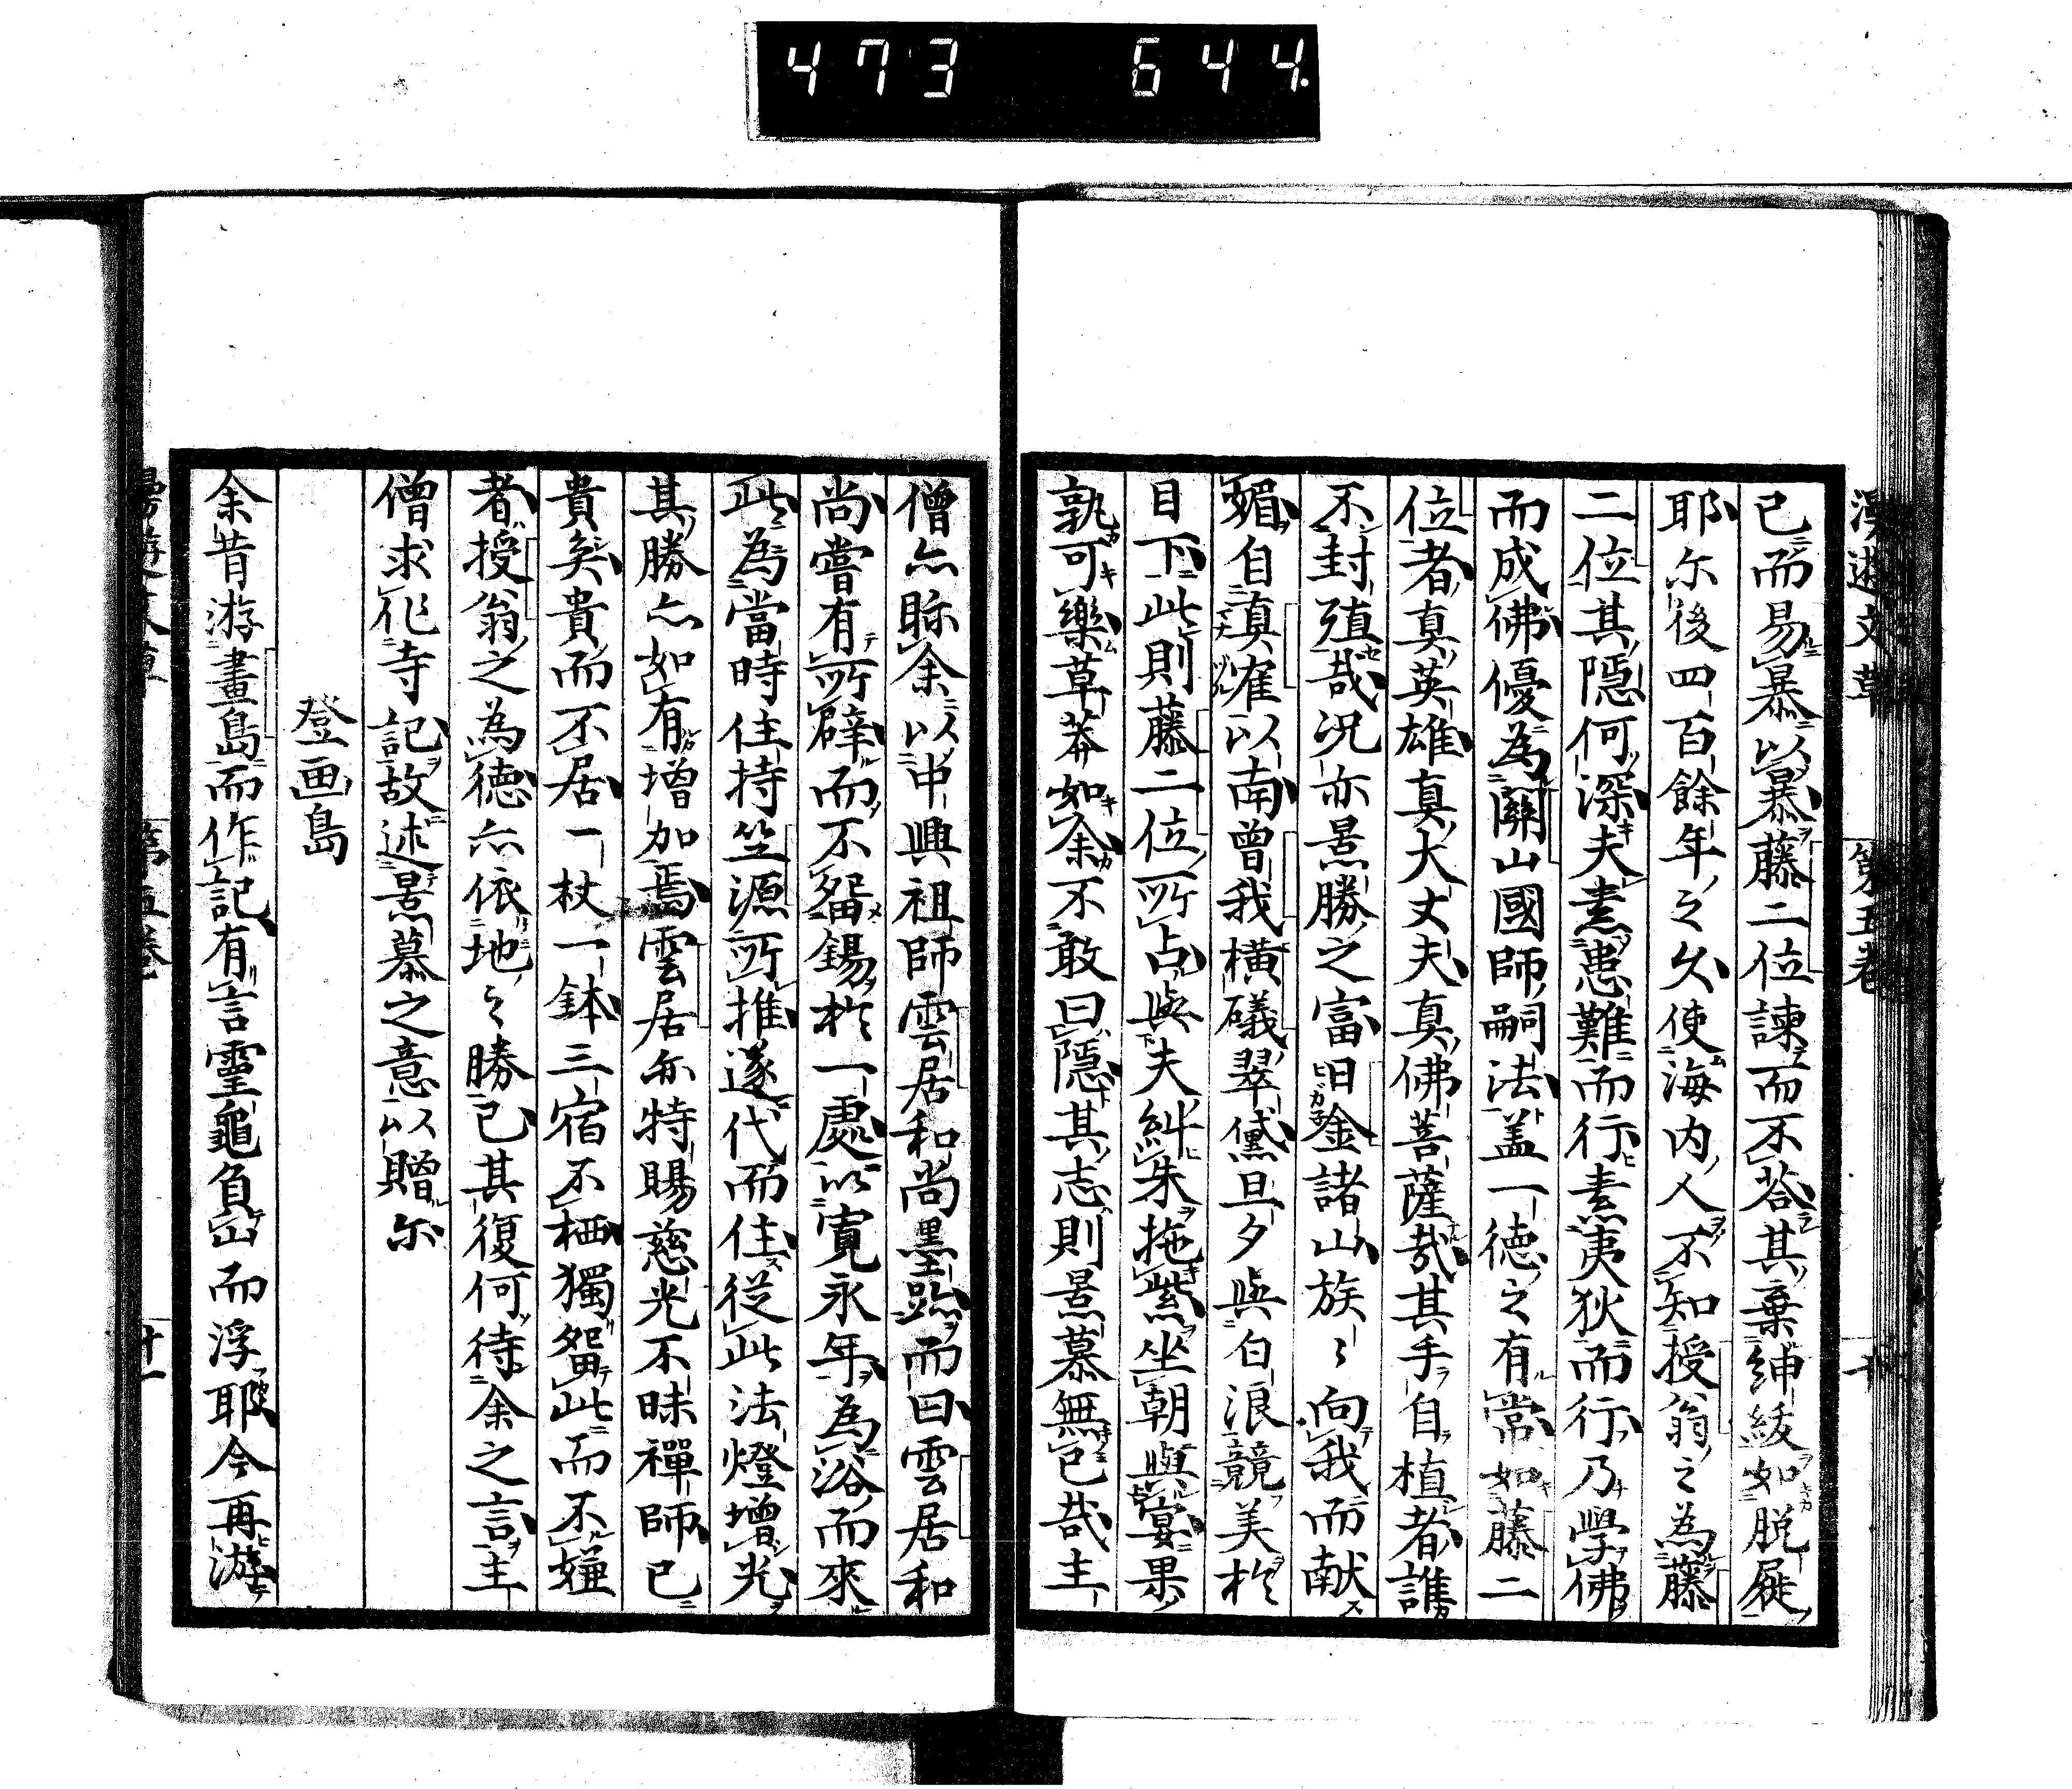 473 644.
漫遊文草 第五卷 十
已而易暴以暴藤二位諫而不荅其棄紳紱如脱屣
耶尓後四百餘年之久使海内人不知授翁之為藤
二位其隠何深夫素患難而行素夷狄而行乃學佛
而成佛優為關山國師嗣法盖一徳之有常如藤二
位者真英雄真大丈夫真佛菩薩哉其手自植者誰
不封殖哉况亦景勝之富日金諸山族〻向我而献
媚自真寉以南曾我横礒翠黛旦夕與白浪競美於
目下此則藤二位所占與夫紆朱拖紫坐朝與宴果
孰可樂草莽如余不敢曰隠其志則景慕無已哉主
僧亦眎余以中興祖師雲居和尚墨跡而曰雲居和
尚嘗有所辟而不畱錫於一處以寛永年為浴而來
此為當時住持竺源所推遂代而住従此法燈增光
其勝亦如有增加焉雲居亦特賜慈光不昧禪師已
貴矣貴而不居一杖一鉢三宿不栖獨畱此而不嫌
者授翁之為徳亦依地〻勝已其復何待余之言主
僧求作寺記故述景慕之意以贈尓
登画島
余昔游畫島而作記有言靈龜負山而浮耶今再游
漫遊文草 第五卷 十一